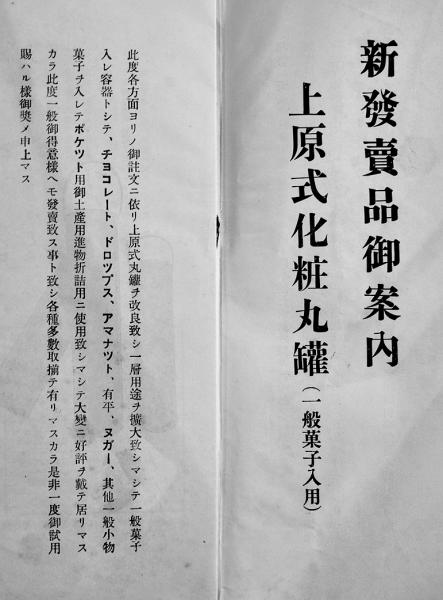 新發賣品御案內
上原式化粧丸罐(一般菓子入用)
此度各方面ヨリノ御註文ニ依リ上原式丸罐ヲ改良致シ一層用途ヲ擴大致シマシテ一般菓子
入レ容器トシテ、チヨコレート、ドロツプス、アマナツト、有平、ヌガー、其他一般小物
菓子ヲ入レテポケツト用御土產用進物折詰用ニ使用致シマシテ大變ニ好評ヲ戴テ居リマス
カラ此度一般御得意樣ヘモ發賣致ス事ト致シ各種多數取揃テ有リマスカラ是非一度御試用
賜ハル樣御奬メ申上マス